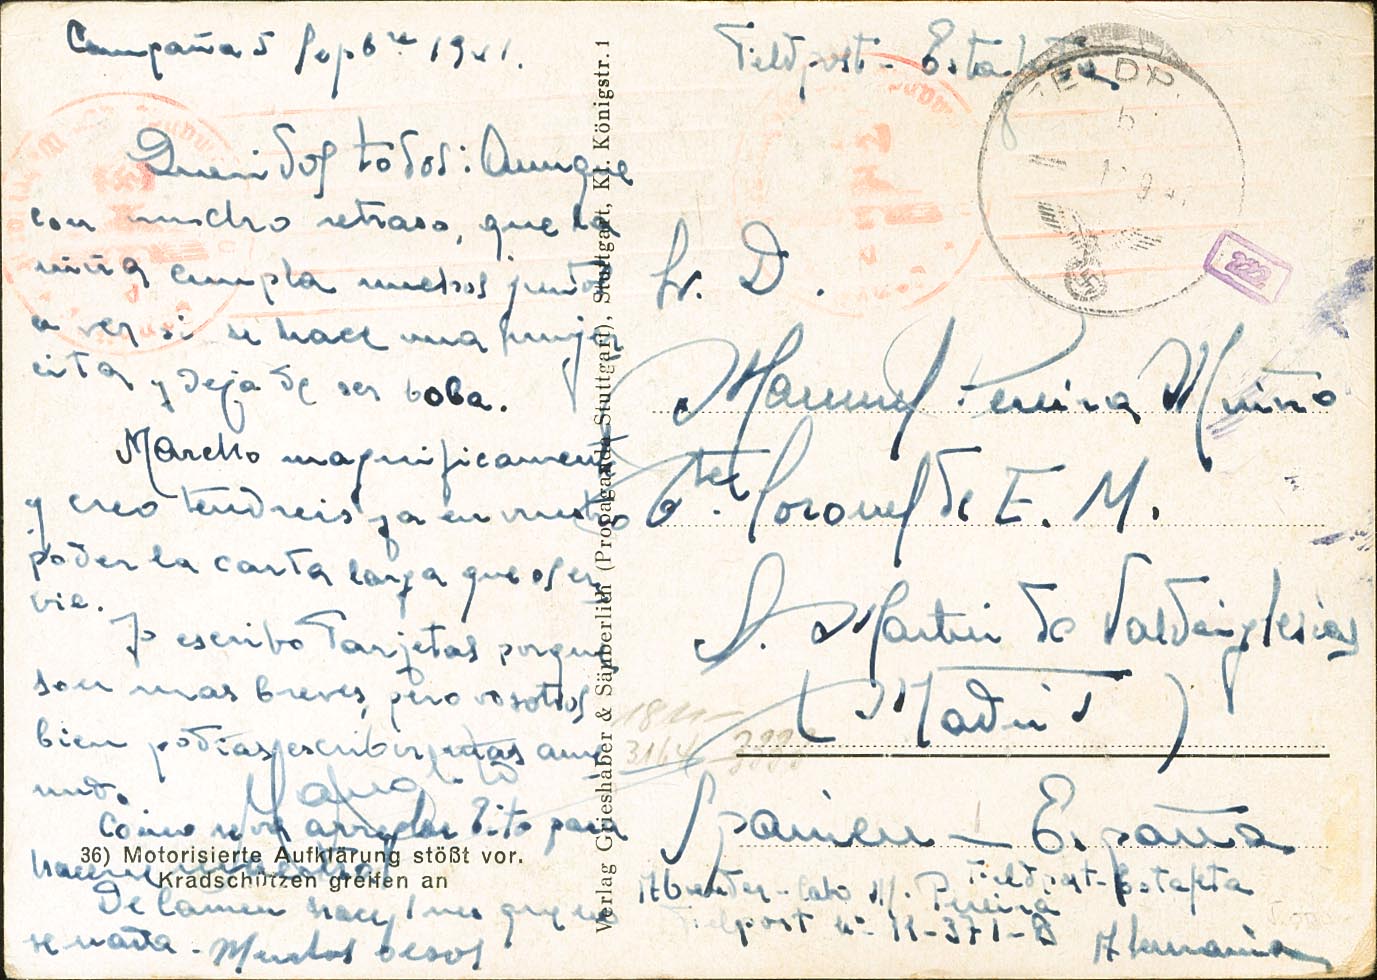 Campaña 5 Sepbre 1941.
Queridos todos: Aunque
con mucho retraso, que la
niña cumpla muchos
a ver si se hace una mujer
cita y deja de ser boba.
Marcho magnificamente
y creo tendreis ya en vuestro
poder la carta larga que os en
vie.
escribo Tarjetas porque
son mas breves, pero vosotros
bien podias escribir mas ame
nudo.
Manolito
Como se va arreglar Tito para
De Carmen hace 1 mes que no
se nada - Muchos besos
36) Motorisierte Aufklärung stößt vor.
Kradschützen greifen an
Verlag Grieshaber & Säuberlich (Propaganda Stuttgart), Stuttgart, Kl. Königstr. 1
Feldpost - Estafeta
FELDP.
b
9 41
Sr. D.
Manuel Pereira Muiño
Tte. Coronel de E. M.
S. Martin de Valdeiglesias
(Madrid)
1811-
3164
Spanien - España
Abender - Cabo M. Pereira
Feldpost - Estafeta
Fielpost nº R-371-B
Alemania